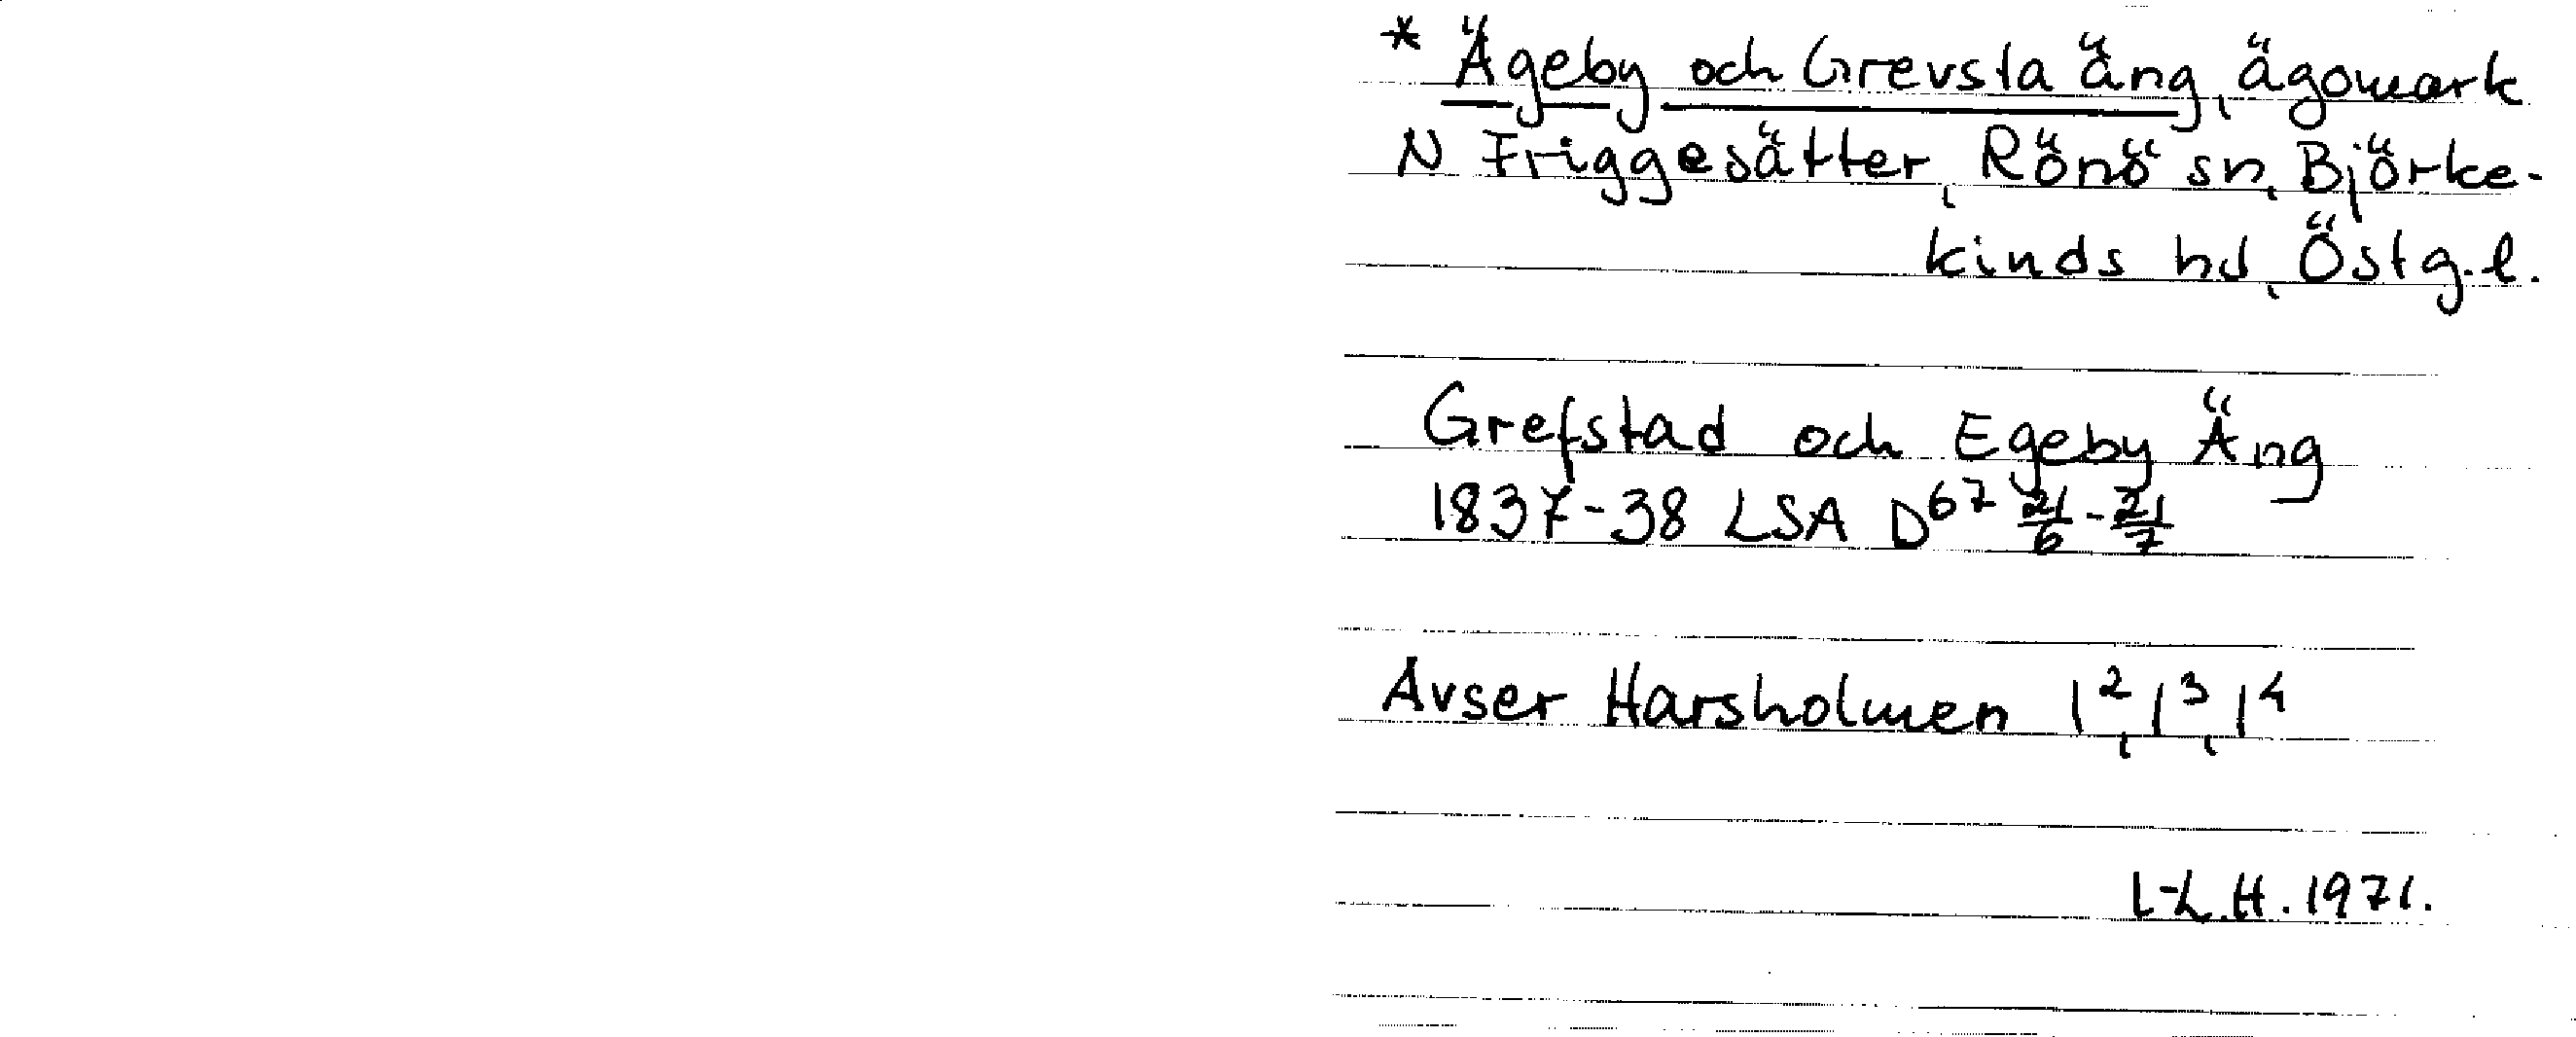 * Ägeby och Grevsta äng, ägomark
N Friggesätter, Rönö sn, Björke-
kinds hd, Östg.l.
Grefstad och Egeby Äng
1837-38 LSA D⁶⁷ 21/6 - 21/7
Avser Harsholmen 1², 1³, 1⁴
L-L.H. 1971.